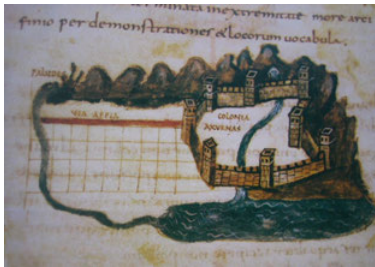 minata inextremitate more arci
finio per demonstrationes & locorum uocabula.
PALUDES
VIA APPIA
COLONIA
AXURNAS